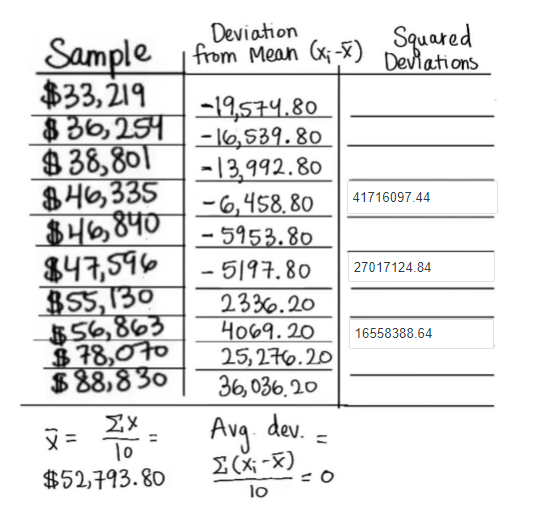 Sample Deviation from Mean (xᵢ-x̄) Squared Deviations
$33,219 -19,574.80
$36,254 -16,539.80
$38,801 -13,992.80
$46,335 -6,458.80 41716097.44
$46,840 -5953.80
$47,596 -5197.80 27017124.84
$55,130 2336.20
$56,863 4069.20 16558388.64
$78,070 25,276.20
$88,830 36,036.20
x̄ = Σx/10 = Avg. dev. =
$52,793.80 Σ(xᵢ-x̄)/10 = 0